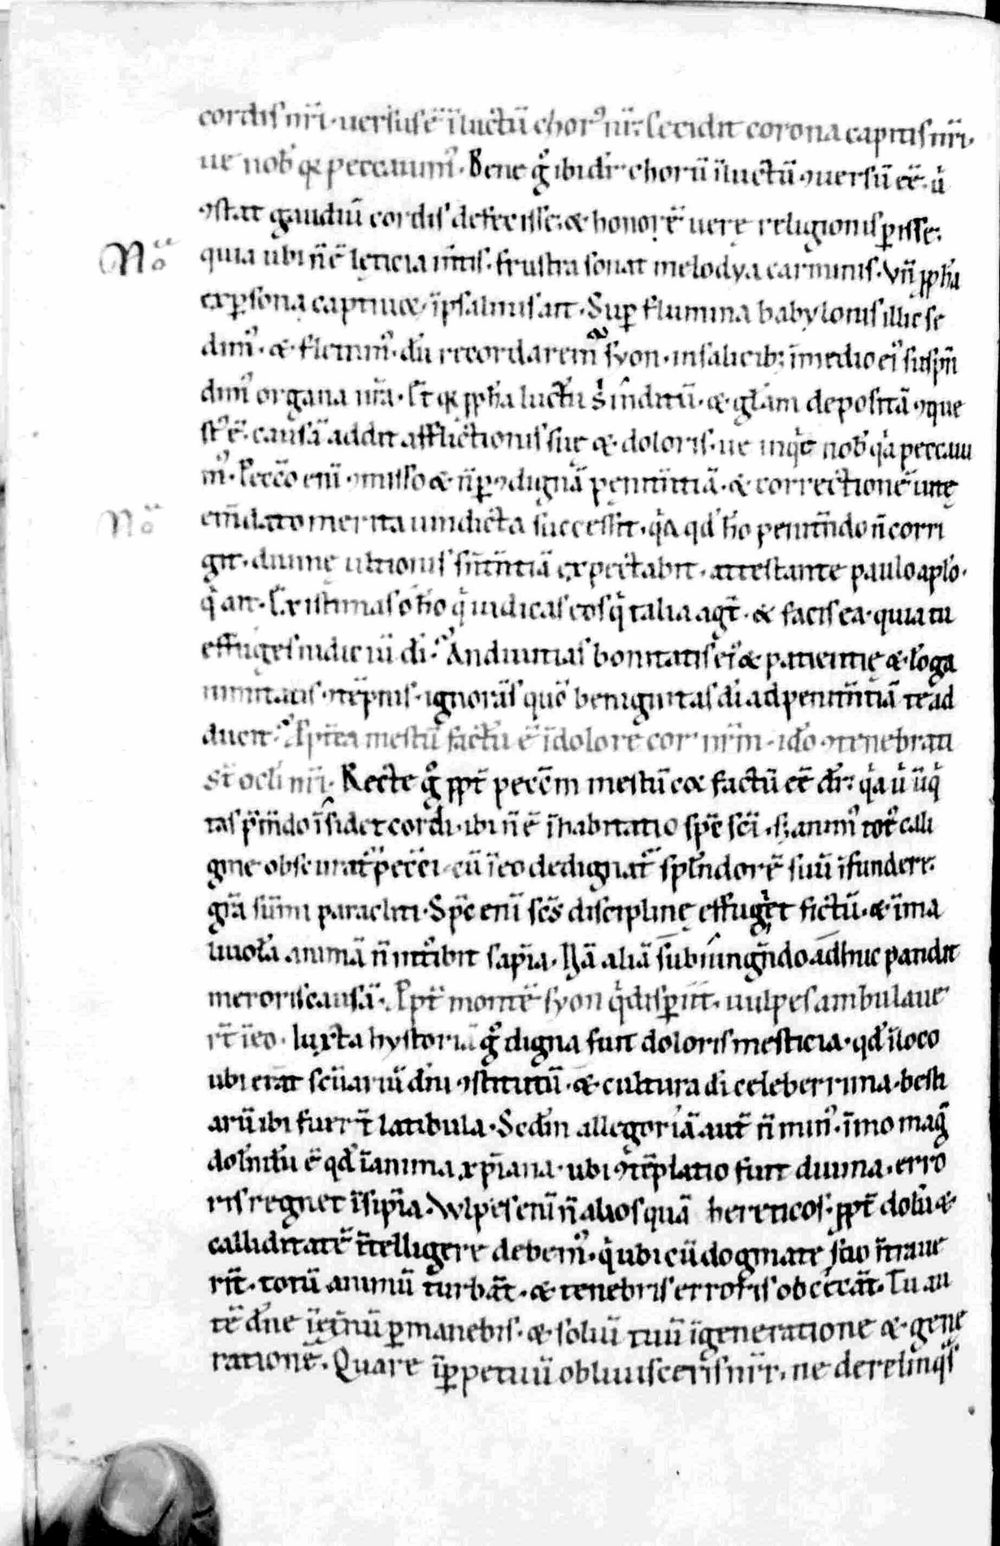 cordis nr̄i · uersus ē ī luctū chorꝰ nr̄: Cecidit corona capitis nr̄i ·
ue nob̄ q̄a peccauimꝰ · Bene gͦ ibi dr̄ chorū ī luctū ꝯuersū eē · ů
ꝯstat gaudiū cordis defecisse: & honorē uere religionis ꝑisse:
Noͣ
quia ubi n̄ ē lęticia m̄tis · frustra sonat melodya carminis · Vn̄ ꝓph̄a
ex ꝑsona captiuoꝝ ī psalmis ait · Suꝑ flumina babylonis illic se
dimꝰ · & fleuimꝰ · dū recordaremꝰ syon · in salicib; ī medio eiꝰ suspn̄
dimꝰ organa nr̄a · S; q̄a ꝓph̄a luctū s̉ inditū · & gl̄am depositā ꝯque
stꝰ ē · causā addit afflictionis suę & doloris · ue inqͥt nob̄ qͥa peccaui
mꝰ · Pecc̄o enī ꝯmisso & n̄ ꝑ ꝯdignā penitn̄tiā · & correctionē uitę
Noͣ
em̄dato merita uindicta succeſſit · qͥa qd̄ h̄o penitn̄do n̄ corri
git · diuine ultionis sn̄tn̄tiā expectabit · attestante paulo apl̄o ·
qͥ ait · Existimas o h̄o qͥ iudicas eos qͥ talia agt̄ · & facis ea · quia tu
effuges iudiciū di̅ · An diuitias bonitatis eiꝰ & patientię & lōga
nimitatis ꝯtēpnis · ignorās quō benignitas di̅ ad penitn̄tiā te ad
ducit · Ꝓpt̄ea mestū factū ē ī dolore cor nr̄m · ido̅ ꝯtenebrati
st̄ ocl̄i nr̄i · Recte gͦ ꝓpt̄ pecc̄m mestū cor factū eē dr̄: qͥa ů iniqͥ
tas p̄mn̄do īsidet cordi · ibi n̄ ē īhabitatio sp̄c sc̄i · s; animꝰ totꝰ cali
gine obscuratꝰ pecc̄i · cū ī eo dedignat᷑ splēdorē suū īfundere
grā summi paracliti · Sp̄c enī sc̄s discipline effugꝫet fictū · & ī ma
liuolā animā n̄ intͦibit sapīa · Nā aliā subiungn̄do adhuc pandit
meroris causā · Ꝓpt̄ montē syon qͥ disꝑiit · uulpes ambulaue
rt̄ ī eo · Iuxta hystoriā gͦ digna fuit doloris mesticia · qd̄ ī loco
ubi erat sc̄uariū dn̄i ꝯstitutū · & cultura di̅ celeberrima · besti
arū ibi fuert̄ latibula · Sed̄m allegoriā aut̄ n̄ minꝰ · īmo magͥ
doln̄dū ē qd̄ ī anima xp̄iana · ubi ꝯtēplatio fuit diuina · erro
ris regnet īsipīa · Vulpes enī n̄ alios quā hereticos · ꝓpt̄ dolū &
calliditatē ītelligere debemꝰ · qͥ ubi cū dogmate suo īt̄raue
rīt · totū animū turbāt · & tenebris erroris obcecāt · Tu au
tē dn̄e ī et̄nū ꝑmanebis · & soliū tuū ī generatione & gene
rationē · Quare ī ꝑpetuū obliuisceris nr̄i · ne derelinqͥs